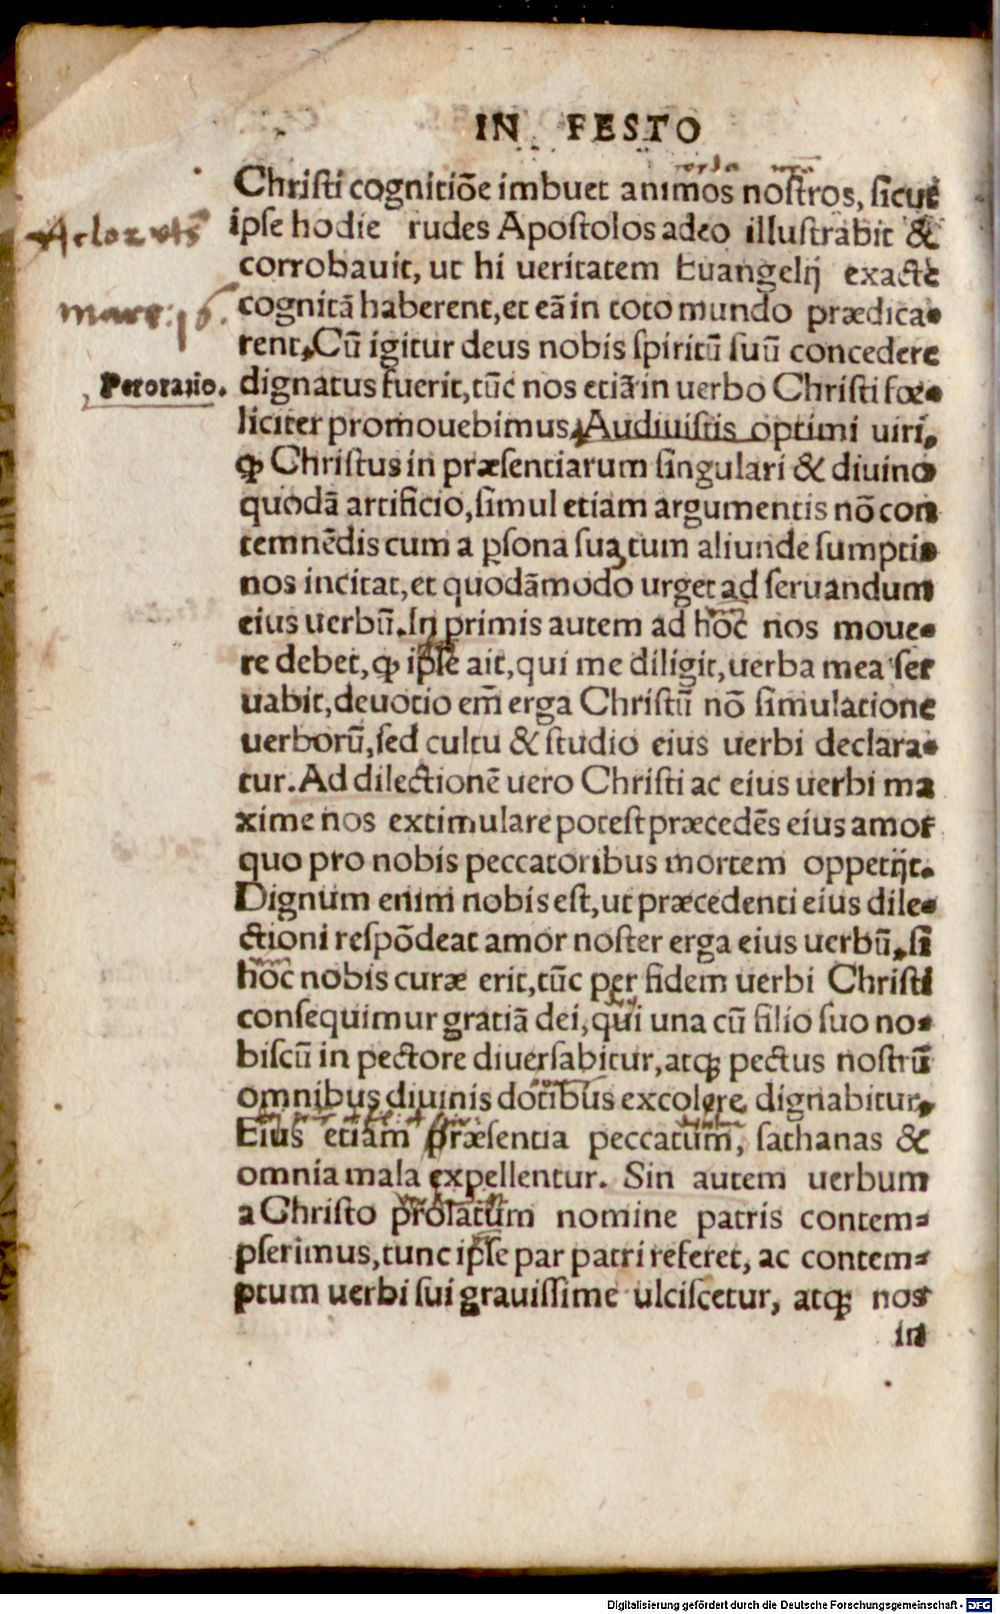 IN FESTO
Christi cognitiōe imbuet animos nostros, sicut
ipse hodie rudes Apostolos adeo illustrabit &
corrobauit, ut hi ueritatem Euangelij exacte
cognitā haberent, et eā in toto mundo prædica-
rent, Cū igitur deus nobis spiritū suū concedere
Peroratio.
dignatus fuerit, tūc nos etiā in uerbo Christi fœ-
liciter promouebimus, Audiuistis optimi uiri,
ꝙ Christus in præsentiarum singulari & diuino
quodā artificio, simul etiam argumentis nō con
temnēdis cum a ꝑsona sua, tum aliunde sumptis
nos incitat, et quodāmodo urget ad seruandum
eius uerbū. In primis autem ad hoc nos moue-
re debet, ꝙ ipse ait, qui me diligit, uerba mea ser
uabit, deuotio em̄ erga Christū nō simulatione
uerborū, sed cultu & studio eius uerbi declara-
tur. Ad dilectionē uero Christi ac eius uerbi ma
xime nos extimulare potest præcedēs eius amor
quo pro nobis peccatoribus mortem oppetijt.
Dignum enim nobis est, ut præcedenti eius dile-
ctioni respōdeat amor noster erga eius uerbū, si
hoc nobis curæ erit, tūc per fidem uerbi Christi
consequimur gratiā dei, qui una cū filio suo no-
biscū in pectore diuersabitur, atqꝫ pectus nostrū
omnibus diuinis dotibus excolere dignabitur,
Eius etiam præsentia peccatum, sathanas &
omnia mala expellentur. Sin autem uerbum
a Christo prolatum nomine patris contem-
pserimus, tunc ipse par patri referet, ac contem-
ptum uerbi sui grauissime ulciscetur, atqꝫ nos
in
Marc: 16.
Digitalisierung gefördert durch die Deutsche Forschungsgemeinschaft - DFG